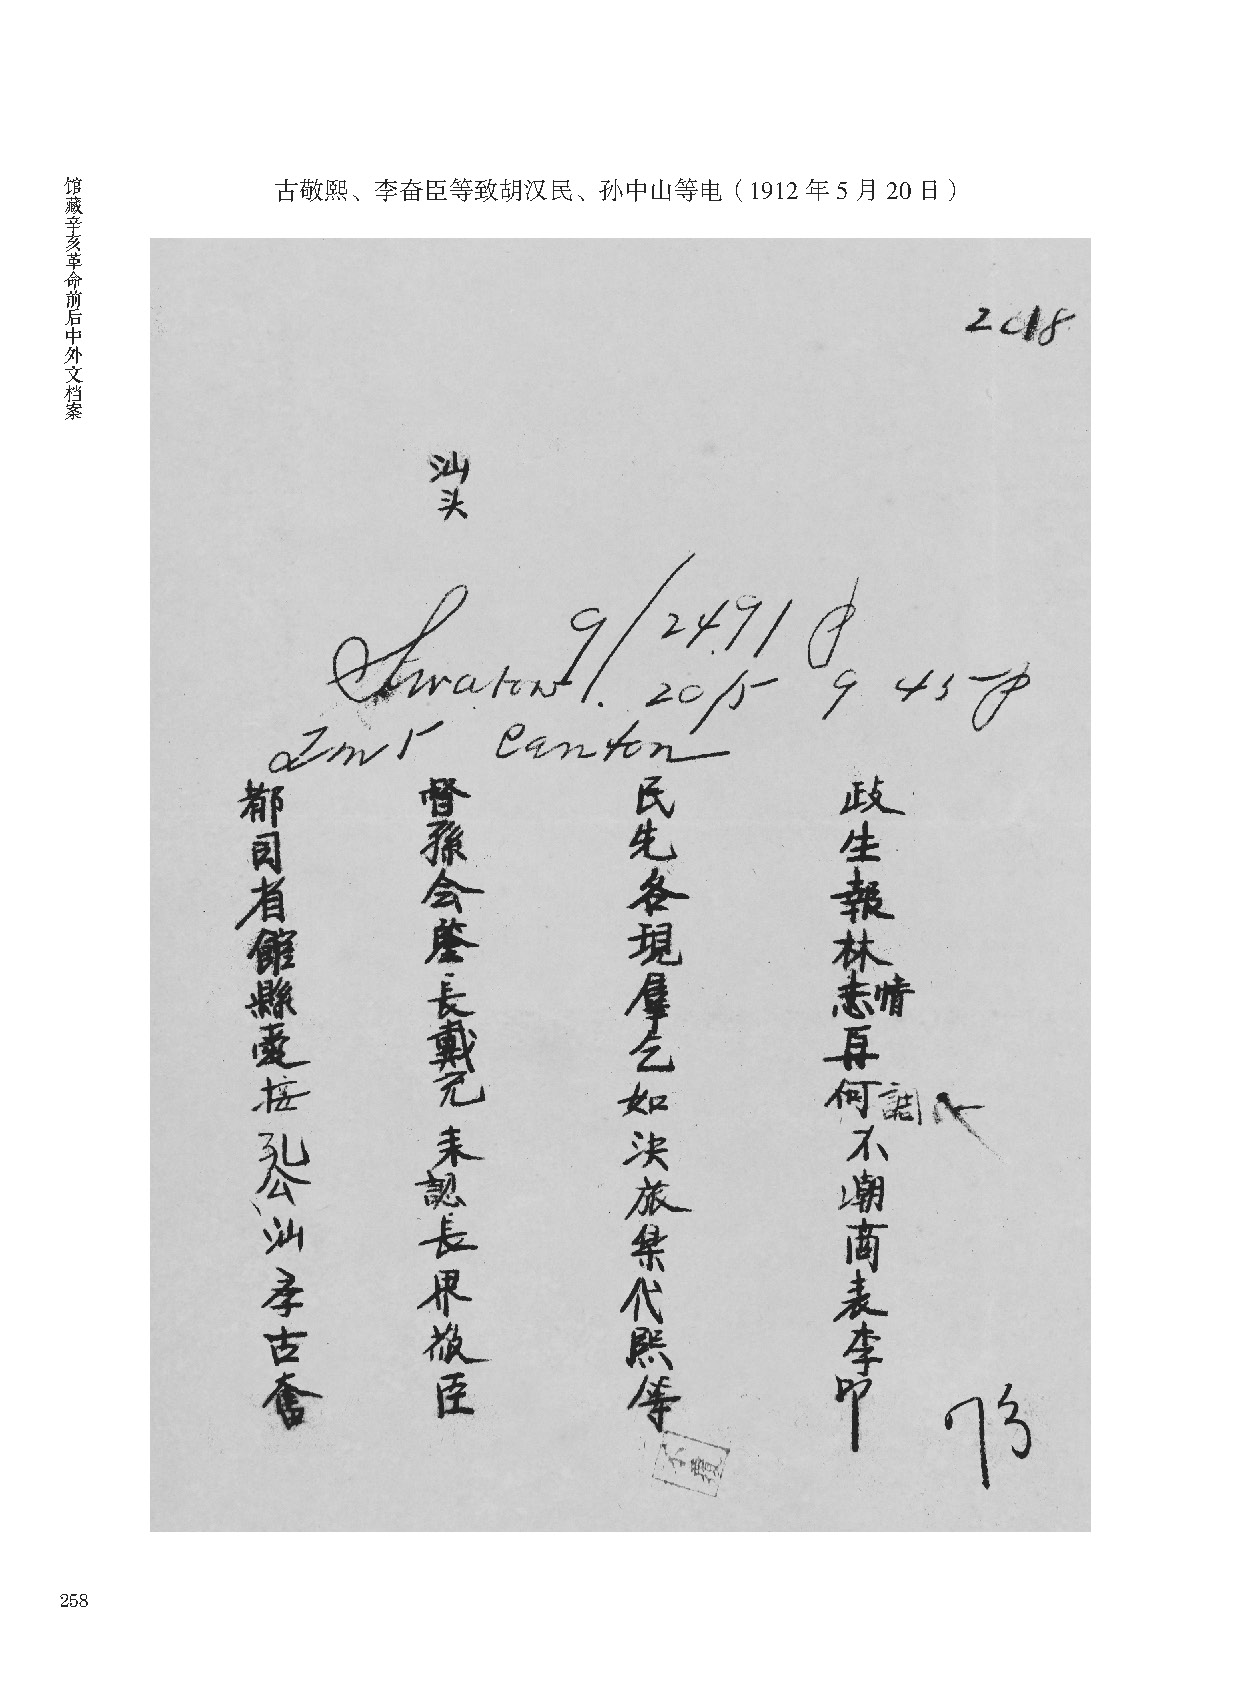 馆藏辛亥革命前后中外文档案
古敬熙、李奋臣等致胡汉民、孙中山等电（1912 年 5 月 20 日）
2018
汕头
Swatow 9/2491 P
20/5 9 45 P
Canton
都督民政
司孫先生
省会各報
館鑒現林
縣長羣情
愛戴乞再
接充如何
孔未決不
公認旅潮
汕長集商
斈界代表
古敬熙李
奮臣等叩
258